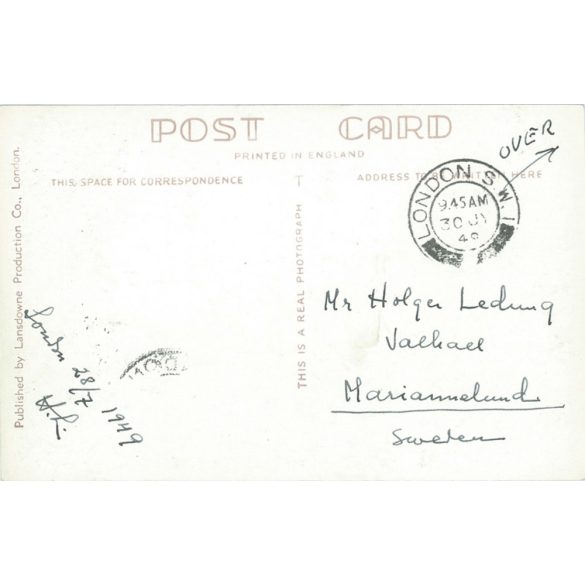 POST CARD
PRINTED IN ENGLAND
THIS SPACE FOR CORRESPONDENCE
ADDRESS TO BE WRITTEN HERE
OVER
LONDON S.W.1
9.45AM
30 JY
49
Published by Lansdowne Production Co., London.
THIS IS A REAL PHOTOGRAPH
London 28/7 1949
H.L.
Mr Holger Ledung
Valhall
Mariannelund
Sweden